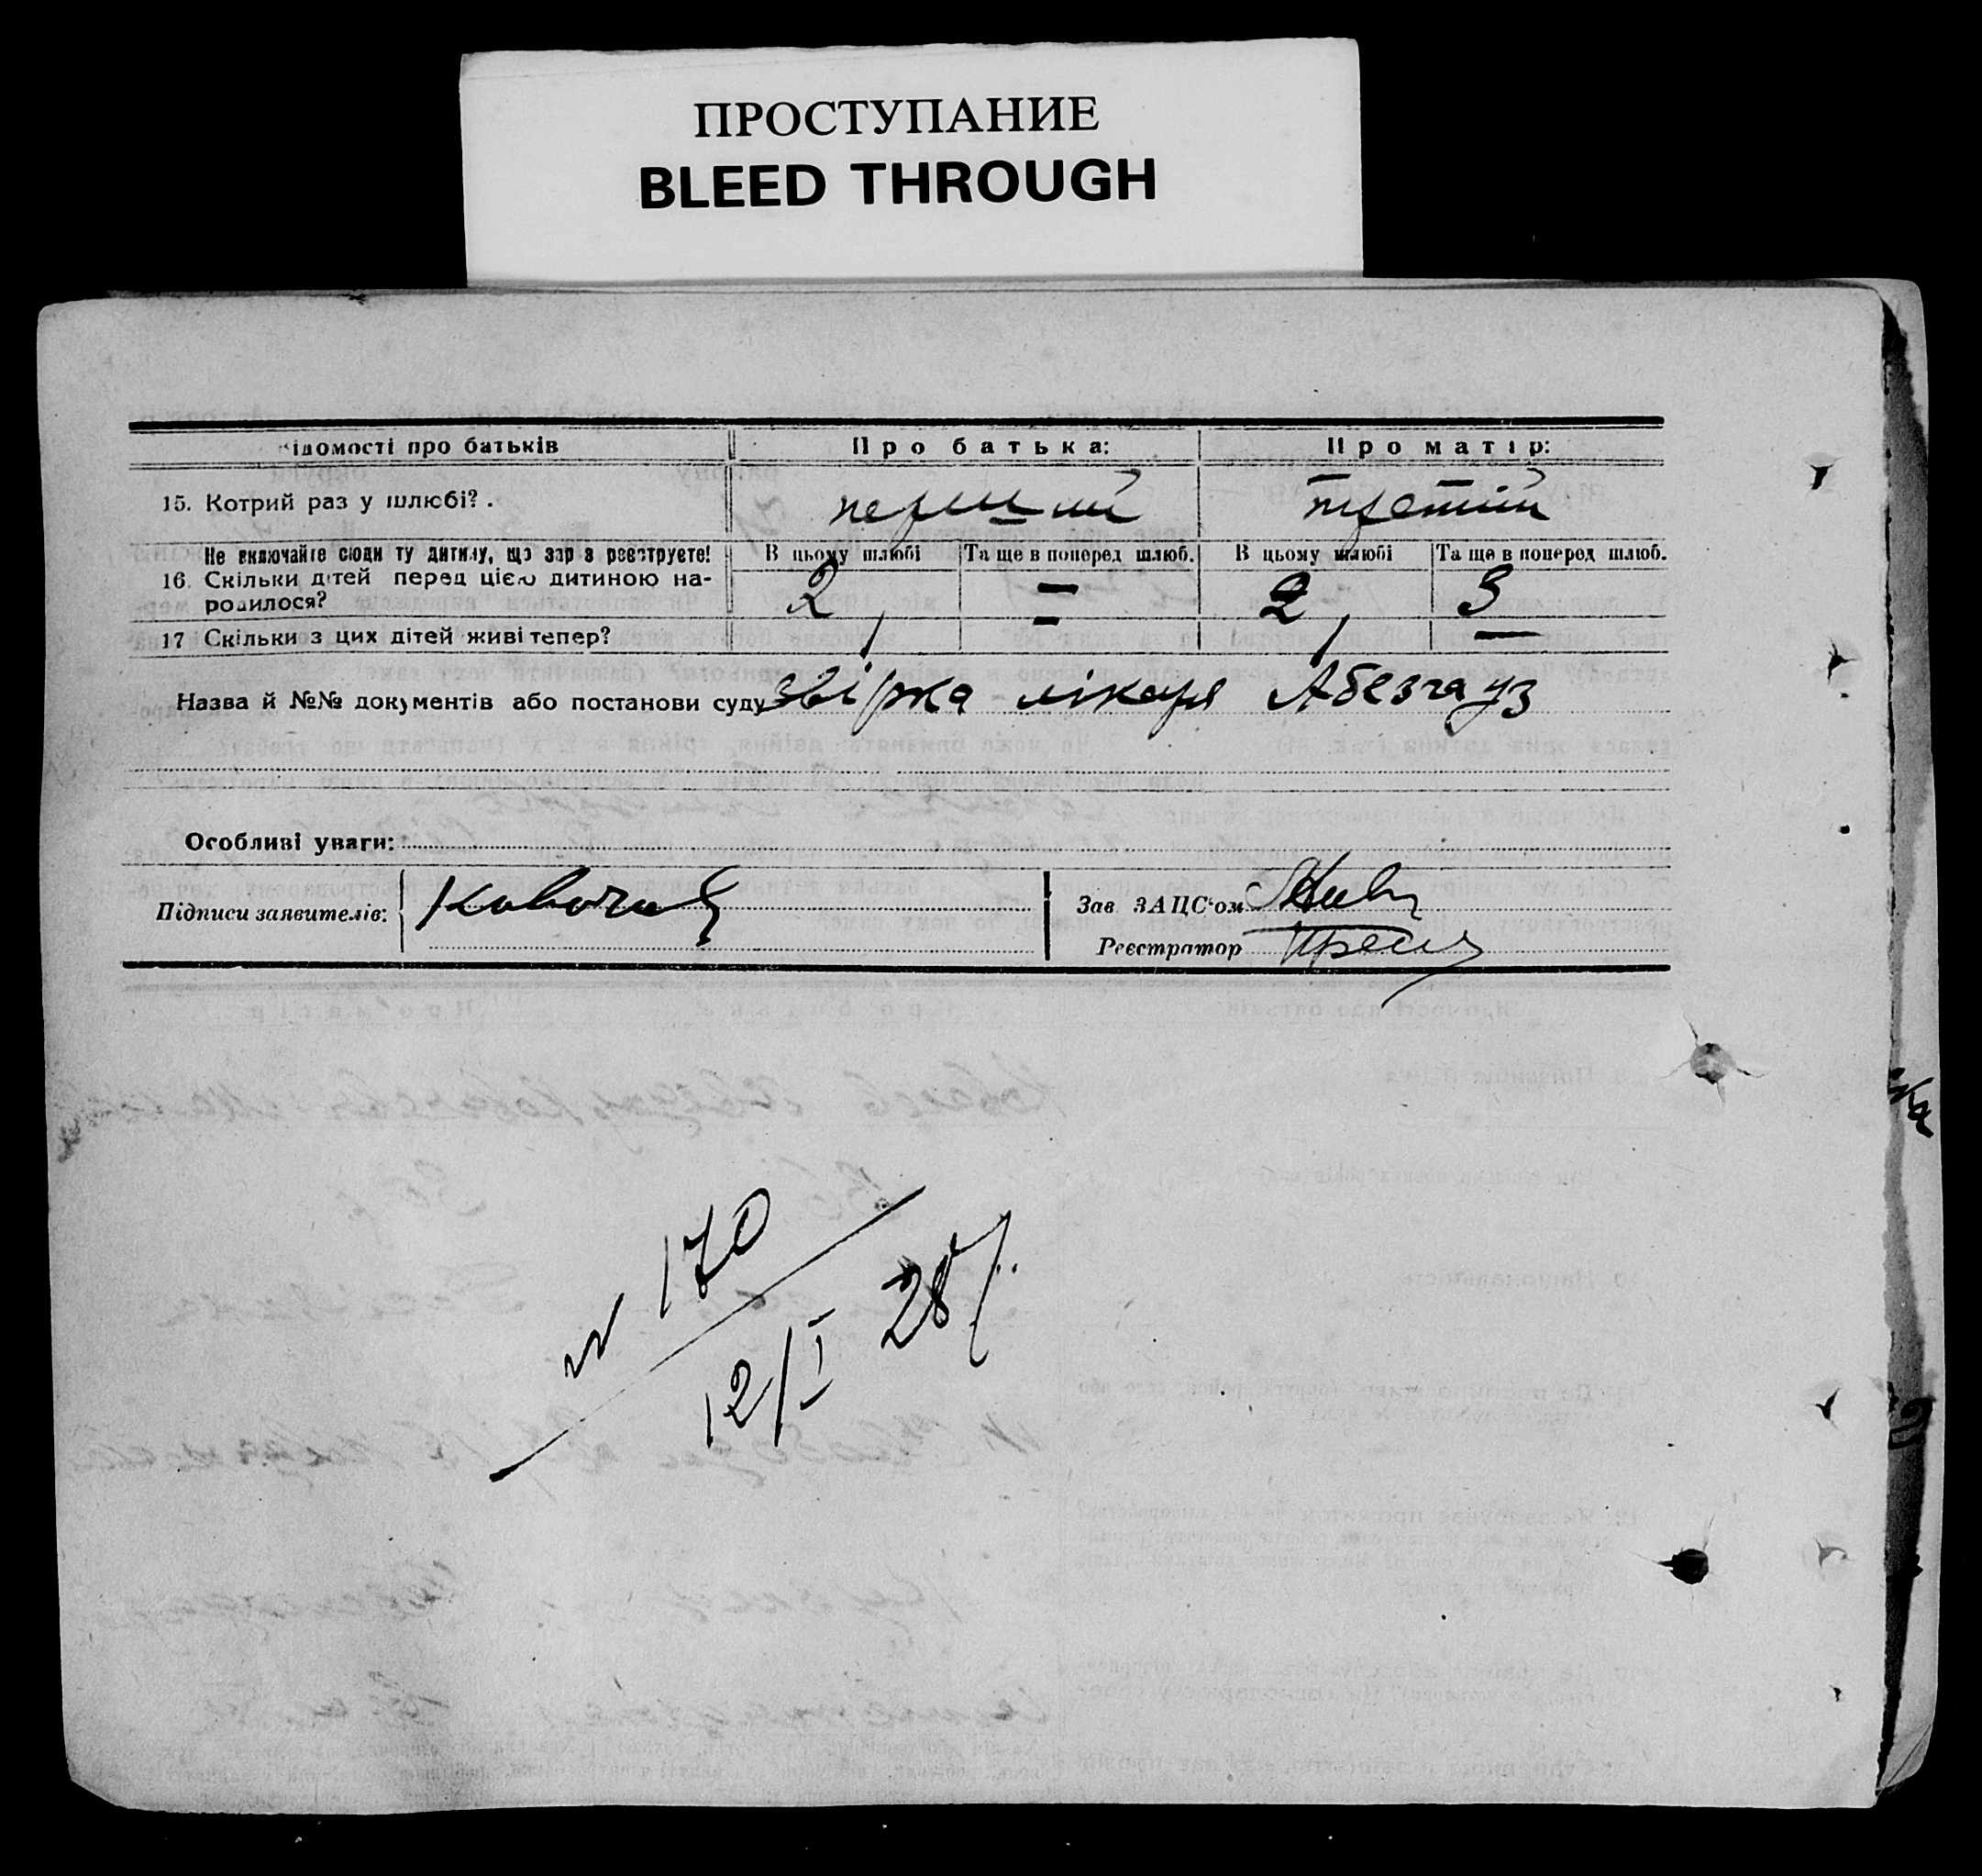 ПРОСТУПАНИЕ
BLEED THROUGH
ідомості про батьків Про батька: Про матір:
15. Котрий раз у шлюбі? . перший третій
Не включайте сюди ту дитину, що зараз реєструєте! В цьому шлюбі Та ще в поперед шлюб. В цьому шлюбі Та ще в поперед шлюб.
16. Скільки дітей перед цією дитиною на-
родилося? 2 — 2 3
17 Скільки з цих дітей живі тепер? 1 — 1 —
Назва й №№ документів або постанови суду звірка лікаря Абезгауз
Особливі уваги:
Підписи заявителів: Зав ЗАЦС'ом
Реєстратор
№ 170
12/I 28 р.